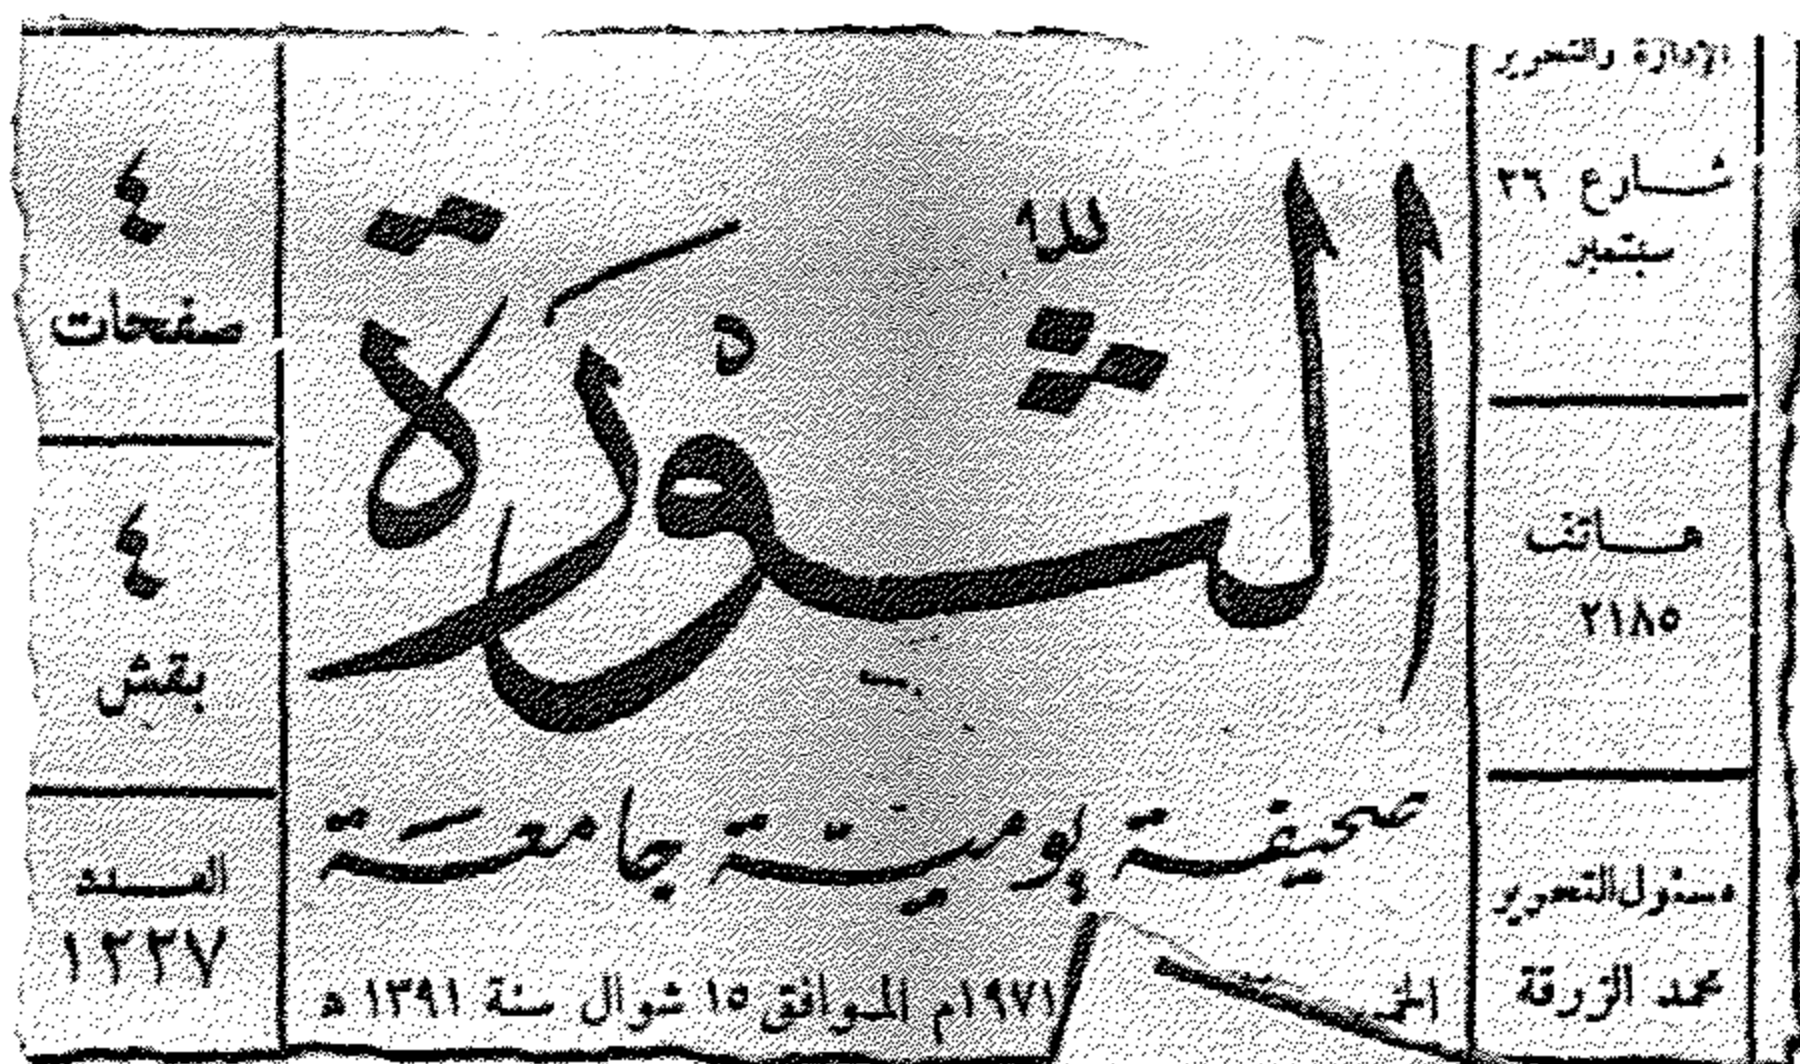 الإدارة والتحرير
شارع ٢٦
سبتمبر
هاتف
٢١٨٥
مسئول التحرير
محمد الزرقة
الثورة
صحيفة يومية جامعة
١٩٧١م الموافق ١٥ شوال سنة ١٣٩١ ه
٤
صفحات
٤
بقش
العدد
١٢٢٧